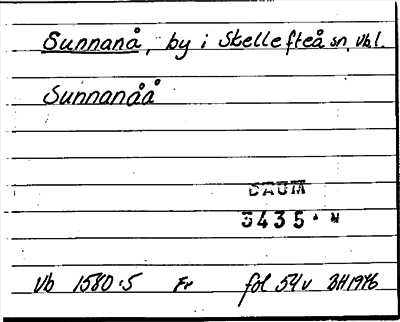 Sunnanå, by i Skellefteå sn, Vb.l.
Sunnanåå
DAUM
3435 · N
Vb 1580:5 Fr fol 54v BH1976